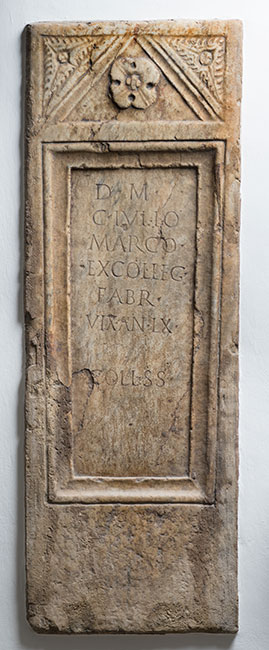 D · M ·
C · IVLIO
MARCO ·
· EX COLLEG ·
FABR ·
VIX AN · LX ·
COLL · S S ·